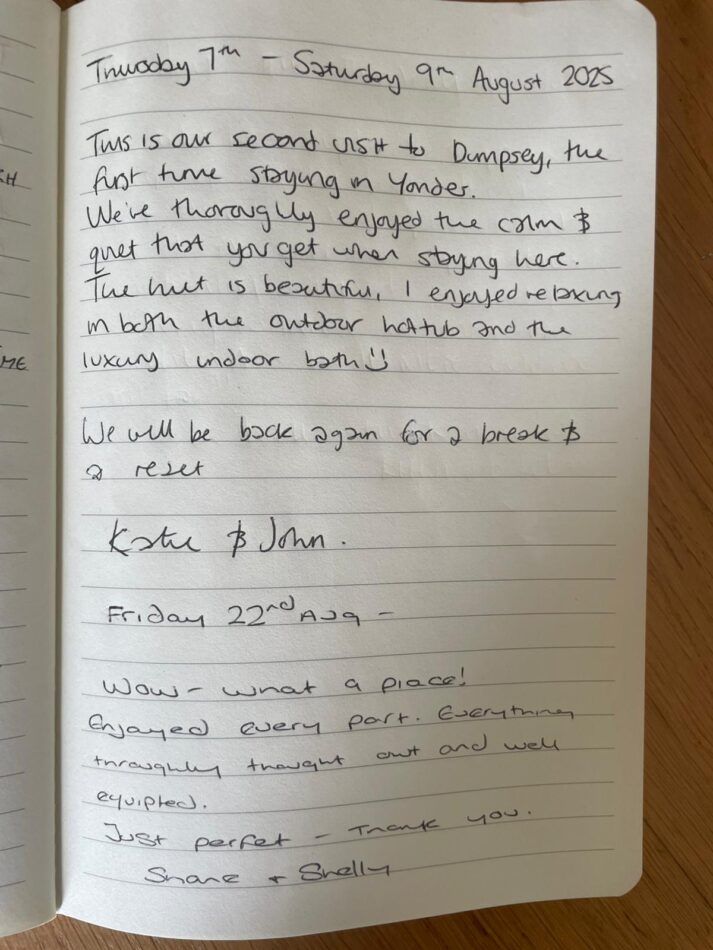 Thursday 7th - Saturday 9th August 2025
This is our second visit to Dumpsey, the
first time staying in Yonder.
We've thoroughly enjoyed the calm &
quiet that you get when staying here.
The hut is beautiful, I enjoyed relaxing
in both the outdoor hot tub and the
luxury indoor bath :)
We will be back again for a break &
a reset
Katie & John.
Friday 22nd Aug -
Wow - what a place!
Enjoyed every part. Everything
throughly thought out and well
equipted.
Just perfet - Thank you.
Shane + Shelly
ME